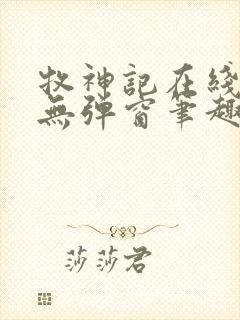 牧神記在綫
無彈窗筆趣
莎莎君